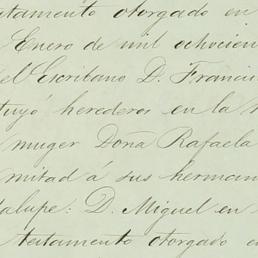 tamento otorgado en
Enero de mil ochocien
el Escribano D. Franci
tuyó herederos en la
muger Doña Rafaela
mitad á sus herman
alupe: D. Miguel en
testamento otorgado